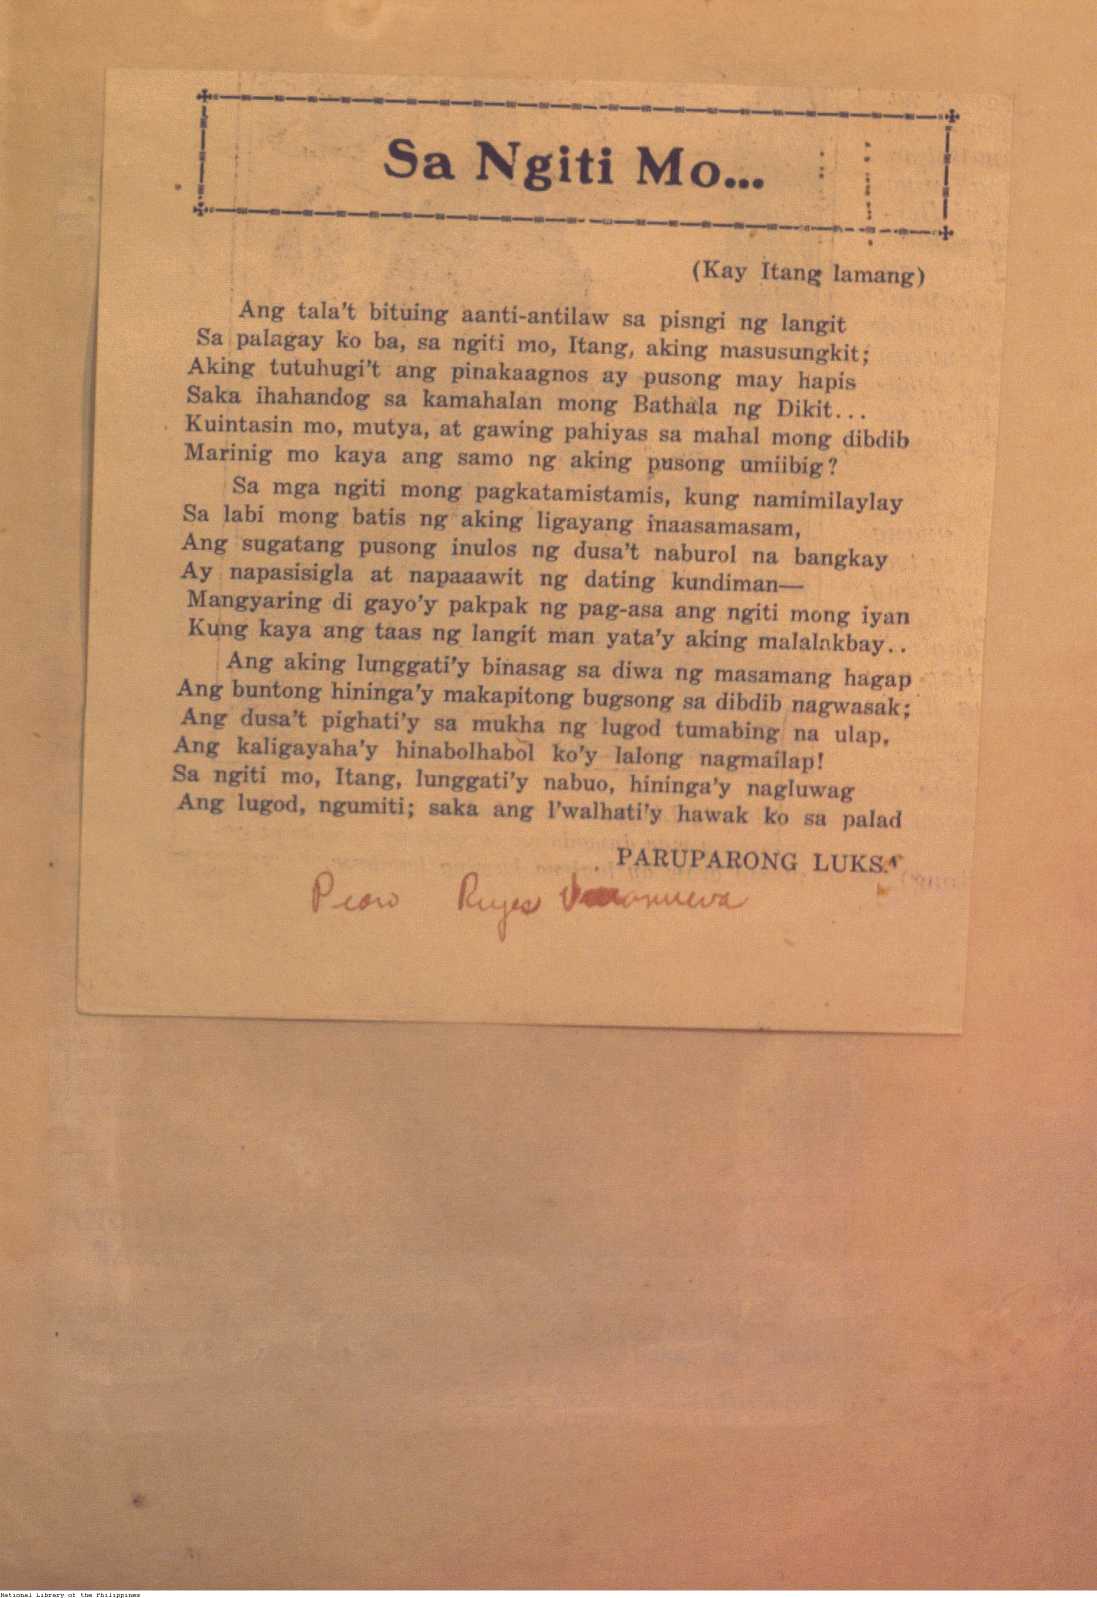 Sa Ngiti Mo...
(Kay Itang lamang)
Ang tala't bituing aanti-antilaw sa pisngi ng langit
Sa palagay ko ba, sa ngiti mo, Itang, aking masusungkit;
Aking tutuhugi't ang pinakaagnos ay pusong may hapis
Saka ihahandog sa kamahalan mong Bathala ng Dikit...
Kuintasin mo, mutya, at gawing pahiyas sa mahal mong dibdib
Marinig mo kaya ang samo ng aking pusong umiibig?
Sa mga ngiti mong pagkatamistamis, kung namimilaylay
Sa labi mong batis ng aking ligayang inaasamasam,
Ang sugatang pusong inulos ng dusa't naburol na bangkay
Ay napasisigla at napaaawit ng dating kundiman—
Mangyaring di gayo'y pakpak ng pag-asa ang ngiti mong iyan
Kung kaya ang taas ng langit man yata'y aking malalakbay..
Ang aking lunggati'y binasag sa diwa ng masamang hagap
Ang buntong hininga'y makapitong bugsong sa dibdib nagwasak;
Ang dusa't pighati'y sa mukha ng lugod tumabing na ulap,
Ang kaligayaha'y hinabolhabol ko'y lalong nagmailap!
Sa ngiti mo, Itang, lunggati'y nabuo, hininga'y nagluwag
Ang lugod, ngumiti; saka ang l'walhati'y hawak ko sa palad
PARUPARONG LUKSA
Reyes
National Library of the Philippines